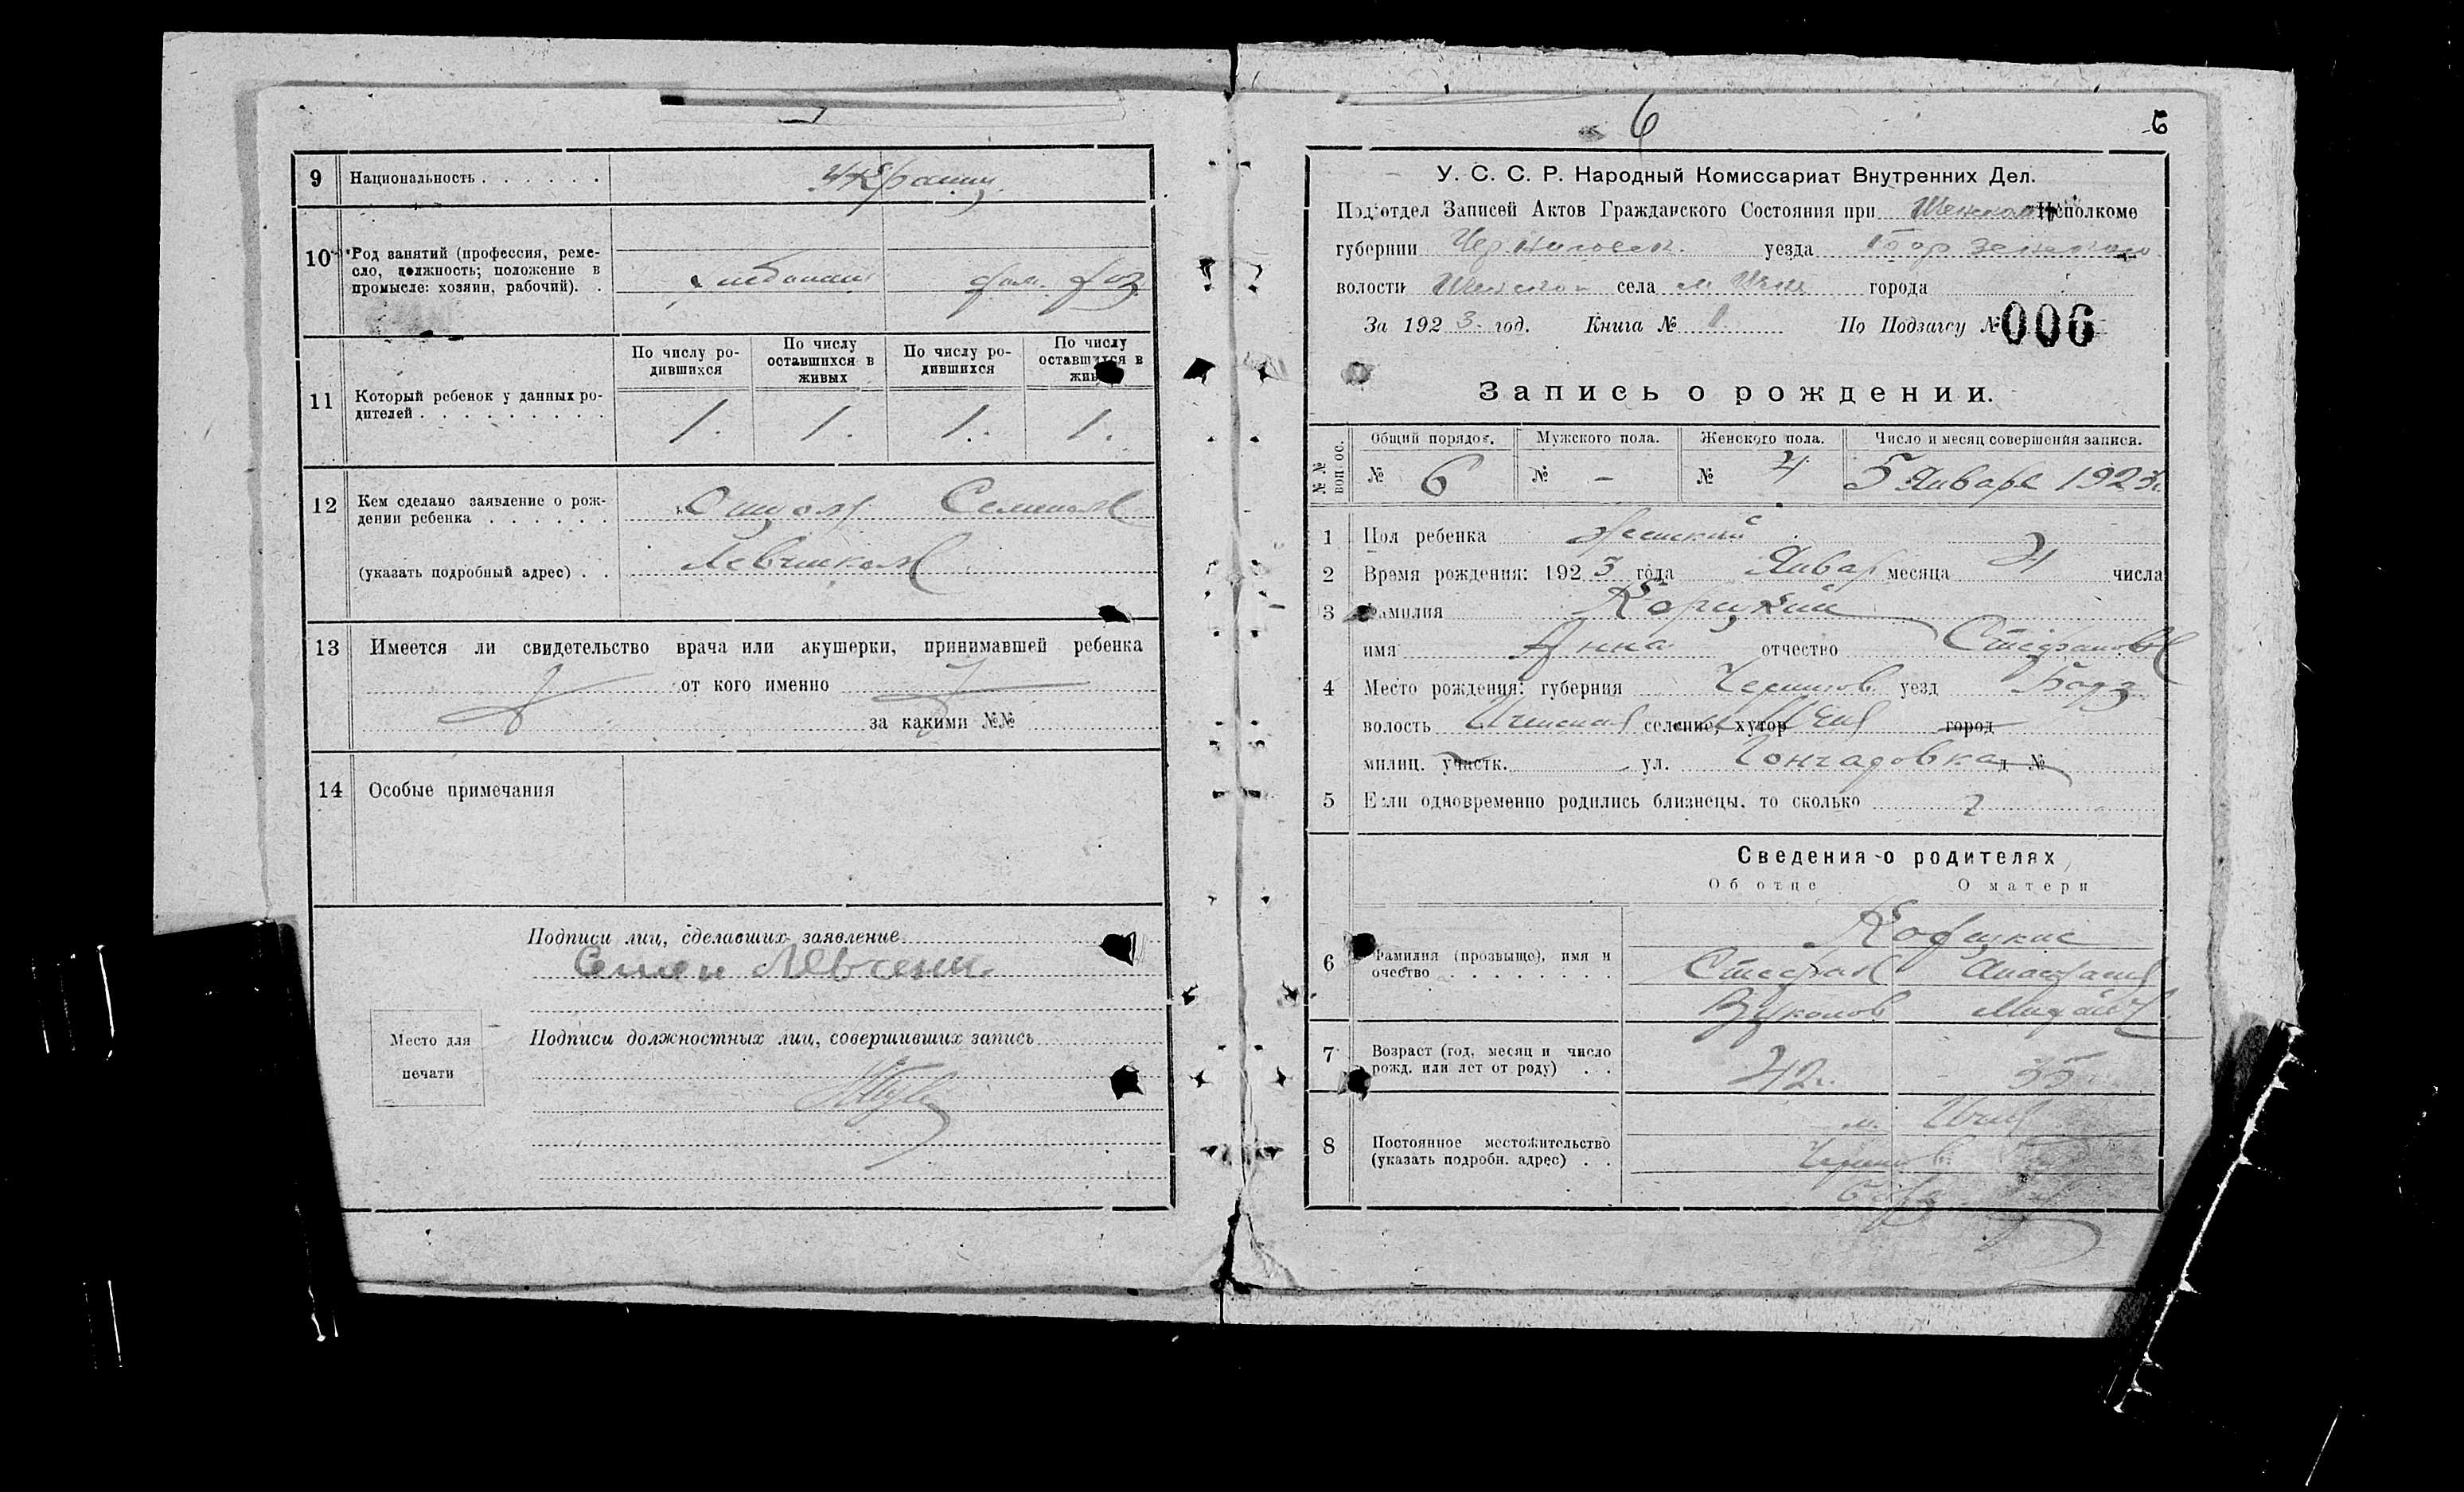 9 Национальность . . . . . .
10 Род занятий (профессия, реме-
сло, должность; положение в
промысле: хозяин, рабочий). .
11 Который ребенок у данных ро-
дителей . . . . . . . . .
По числу ро-
дившихся
По числу
оставшихся в
живых
По числу ро-
дившихся
По числу
оставшихся в
живых
1. 1. 1. 1.
12 Кем сделано заявление о рож-
дении ребенка . . . . . .
(указать подробный адрес) . .
Семеном
Левченком
13 Имеется ли свидетельство врача или акушерки, принимавшей ребенка
от кого именно
за какими №№
14 Особые примечания
Подписи лиц, сделавших заявление
Семен Левченко
Место для
печати
Подписи должностных лиц, совершивших запись
6
5
У. С. С. Р. Народный Комиссариат Внутренних Дел.
Подотдел Записей Актов Гражданского Состояния при Исполкоме
губернии Черниговск. уезда
волости села м. Ичня города
За 1923 год. Книга № 1 По Подзагсу № 006
Запись о рождении.
№ № вопрос.
Общий порядок. Мужского пола. Женского пола. Число и месяц совершения записи.
№ 6 № - № 4 5 Января 1923 г.
1 Пол ребенка женский
2 Время рождения: 1923 года Январ месяца 4 числа
3 Фамилия Корицкий
имя Анна отчество Стефановн
4 Место рождения: губерния Чернигов уезд Борз
волость Ичнянская селение, хутор м. Ичня город
милиц. участк. ул. Гончаровка д №
5 Если одновременно родились близнецы, то сколько
Сведения о родителях
Об отце О матери
6 Фамилия (прозвище), имя и
очество . . . . . . . .
Корицкие
Стефан Анастасия
Вуколов Михайл
7 Возраст (год, месяц и число
рожд. или лет от роду) . .
42 г. 35
8 Постоянное местожительство
(указать подробн. адрес) . .
м. Ичня